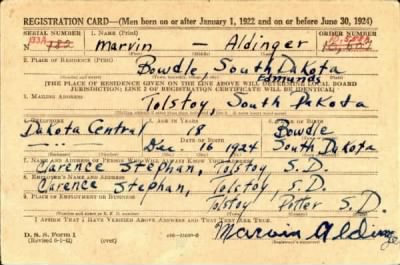 REGISTRATION CARD—(Men born on or after January 1, 1922 and on or before June 30, 1924)
SERIAL NUMBER 1. NAME (Print) ORDER NUMBER
Marvin — Aldinger
2. PLACE OF RESIDENCE (Print)
Bowdle, South Dakota
Edmunds
[THE PLACE OF RESIDENCE GIVEN ON THE LINE ABOVE WILL DETERMINE LOCAL BOARD
JURISDICTION; LINE 2 OF REGISTRATION CERTIFICATE WILL BE IDENTICAL]
3. MAILING ADDRESS
Tolstoy, South Dakota
4. TELEPHONE 5. AGE IN YEARS
Dakota Central 18 Bowdle
DATE OF BIRTH
Dec. 16 1924 South Dakota
7. NAME AND ADDRESS OF PERSON WHO WILL ALWAYS KNOW YOUR ADDRESS
Clarence Stephan, Tolstoy S.D.
8. EMPLOYER'S NAME AND ADDRESS
Clarence Stephan, Tolstoy, S.D.
Tolstoy Potter S.D.
I AFFIRM THAT I HAVE VERIFIED ABOVE ANSWERS AND THAT THEY ARE TRUE.
D. S. S. Form 1
(Revised 6-1-42) (over)
Marvin Aldinger